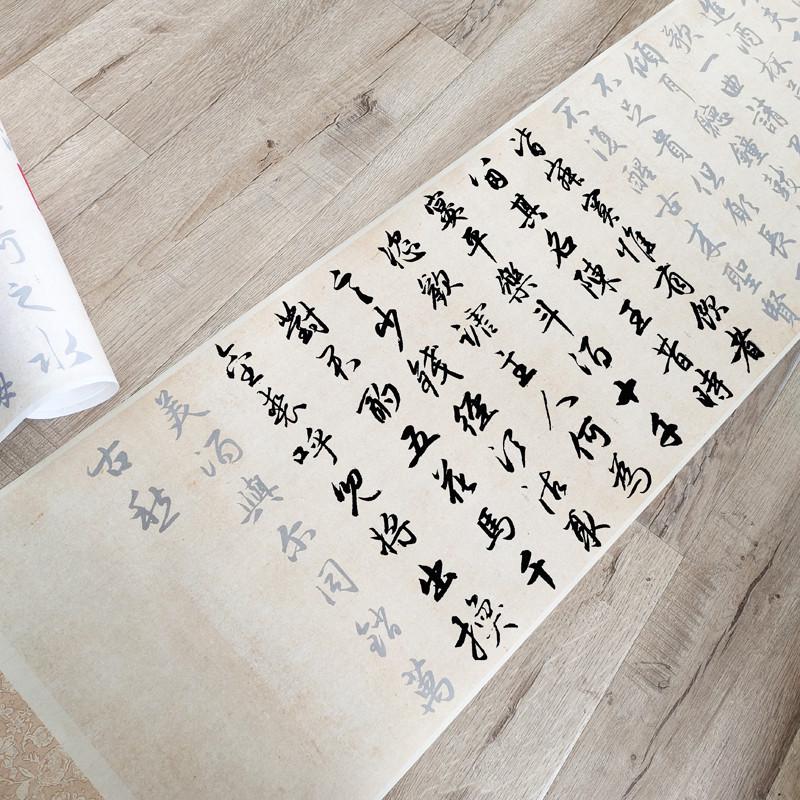 夫
進酒杯
歌一曲請
傾耳聽鐘鼓
不足貴但願長
不復醒古來聖賢
皆寂寞惟有飲者
留其名陳王昔時
宴平樂斗酒十千
恣歡謔主人何為
言少錢徑須沽取
對君酌五花馬千
金裘呼兒將出換
美酒與爾同銷萬
古愁
河之水